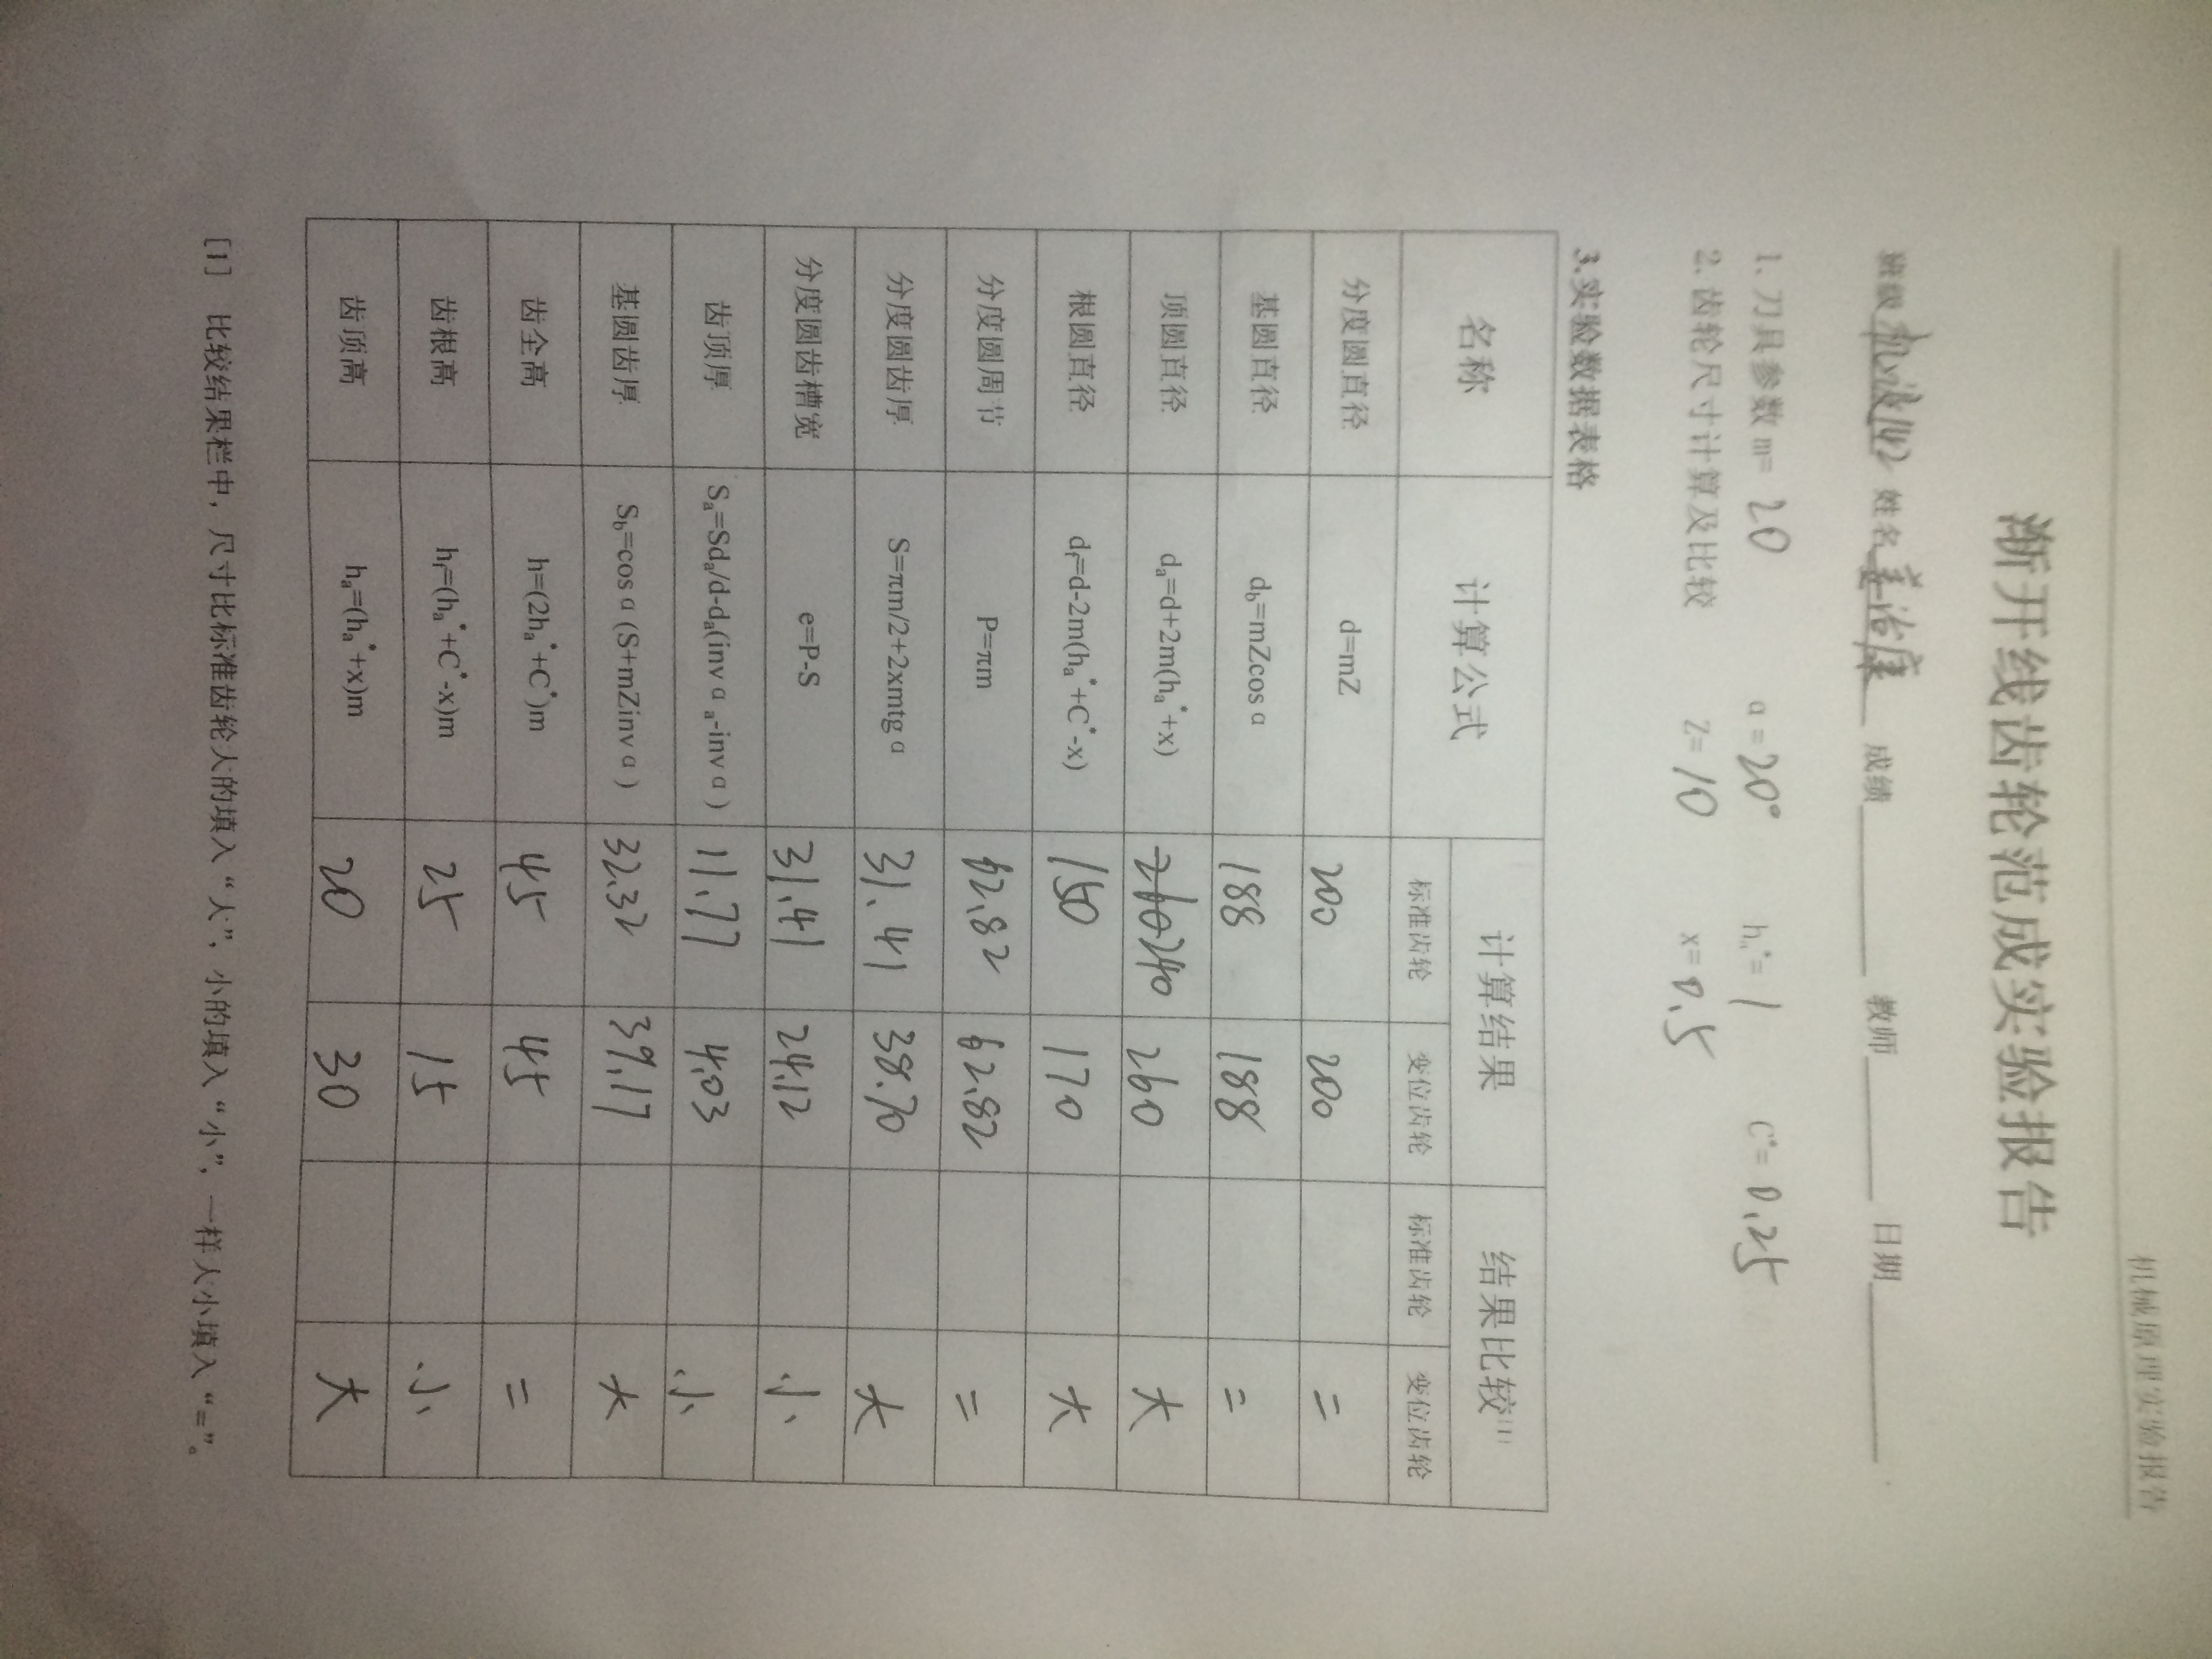 机械原理实验报告
渐开线齿轮范成实验报告
班级 机液142 姓名 姜治康 成绩 教师 日期
1. 刀具参数 m= 20 α=20° hₐ*=1 C*=0.25
2. 齿轮尺寸计算及比较 Z=10 x=0.5
3.实验数据表格
名称 计算公式 计算结果 结果比较[1]
标准齿轮 变位齿轮 标准齿轮 变位齿轮
分度圆直径 d=mZ 200 200 =
基圆直径 d_b=mZcosα 188 188 =
顶圆直径 dₐ=d+2m(hₐ*+x) 240 260 大
根圆直径 d_f=d-2m(hₐ*+C*-x) 150 170 大
分度圆周节 P=πm 62.82 62.82 =
分度圆齿厚 S=πm/2+2xmtgα 31.41 38.70 大
分度圆齿槽宽 e=P-S 31.41 24.12 小
齿顶厚 Sₐ=Sdₐ/d-dₐ(invαₐ-invα) 11.77 4.03 小
基圆齿厚 S_b=cosα(S+mZinvα) 32.32 39.17 大
齿全高 h=(2hₐ*+C*)m 45 45 =
齿根高 h_f=(hₐ*+C*-x)m 25 15 小
齿顶高 hₐ=(hₐ*+x)m 20 30 大
[1] 比较结果栏中，尺寸比标准齿轮大的填入“大”，小的填入“小”，一样大小填入“=”。